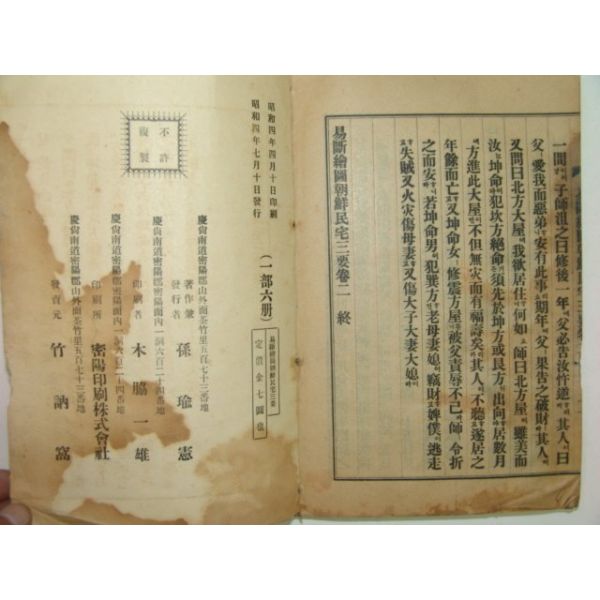 一間子師沮之曰修後一年父必告汝忤逆其人曰
父愛我而惡弟安有此事期年父果告之破財其人
又問曰北方大屋我欲居住何如師曰北方屋雖美而
汝坤命犯坎方絕命須先於坤方或艮方出向居數月
方進此大屋不但無灾而有福壽矣其人不聽遂居之
年餘而亡又坤命女修震方屋被父責辱不已師令折
之而安若坤命男犯巽方老母妻媳竊財婢僕逃走
失賊又火灾傷母妻又傷大子大妻大媳
易斷繪圖朝鮮民宅三要卷二 終
昭和四年四月十日印刷
昭和四年七月十日發行
(一部六册)
易斷繪圖朝鮮民宅三要
定價金七圓
不許
複製
慶尙南道密陽郡山外面茶竹里五百七十三番地
著作兼
發行者 孫瑜憲
慶尙南道密陽郡密陽面內一洞六百二十四番地
印刷者 木脇一雄
慶尙南道密陽郡密陽面內一洞六百二十四番地
印刷所 密陽印刷株式會社
慶尙南道密陽郡山外面茶竹里五百七十三番地
發賣元 竹訥窩